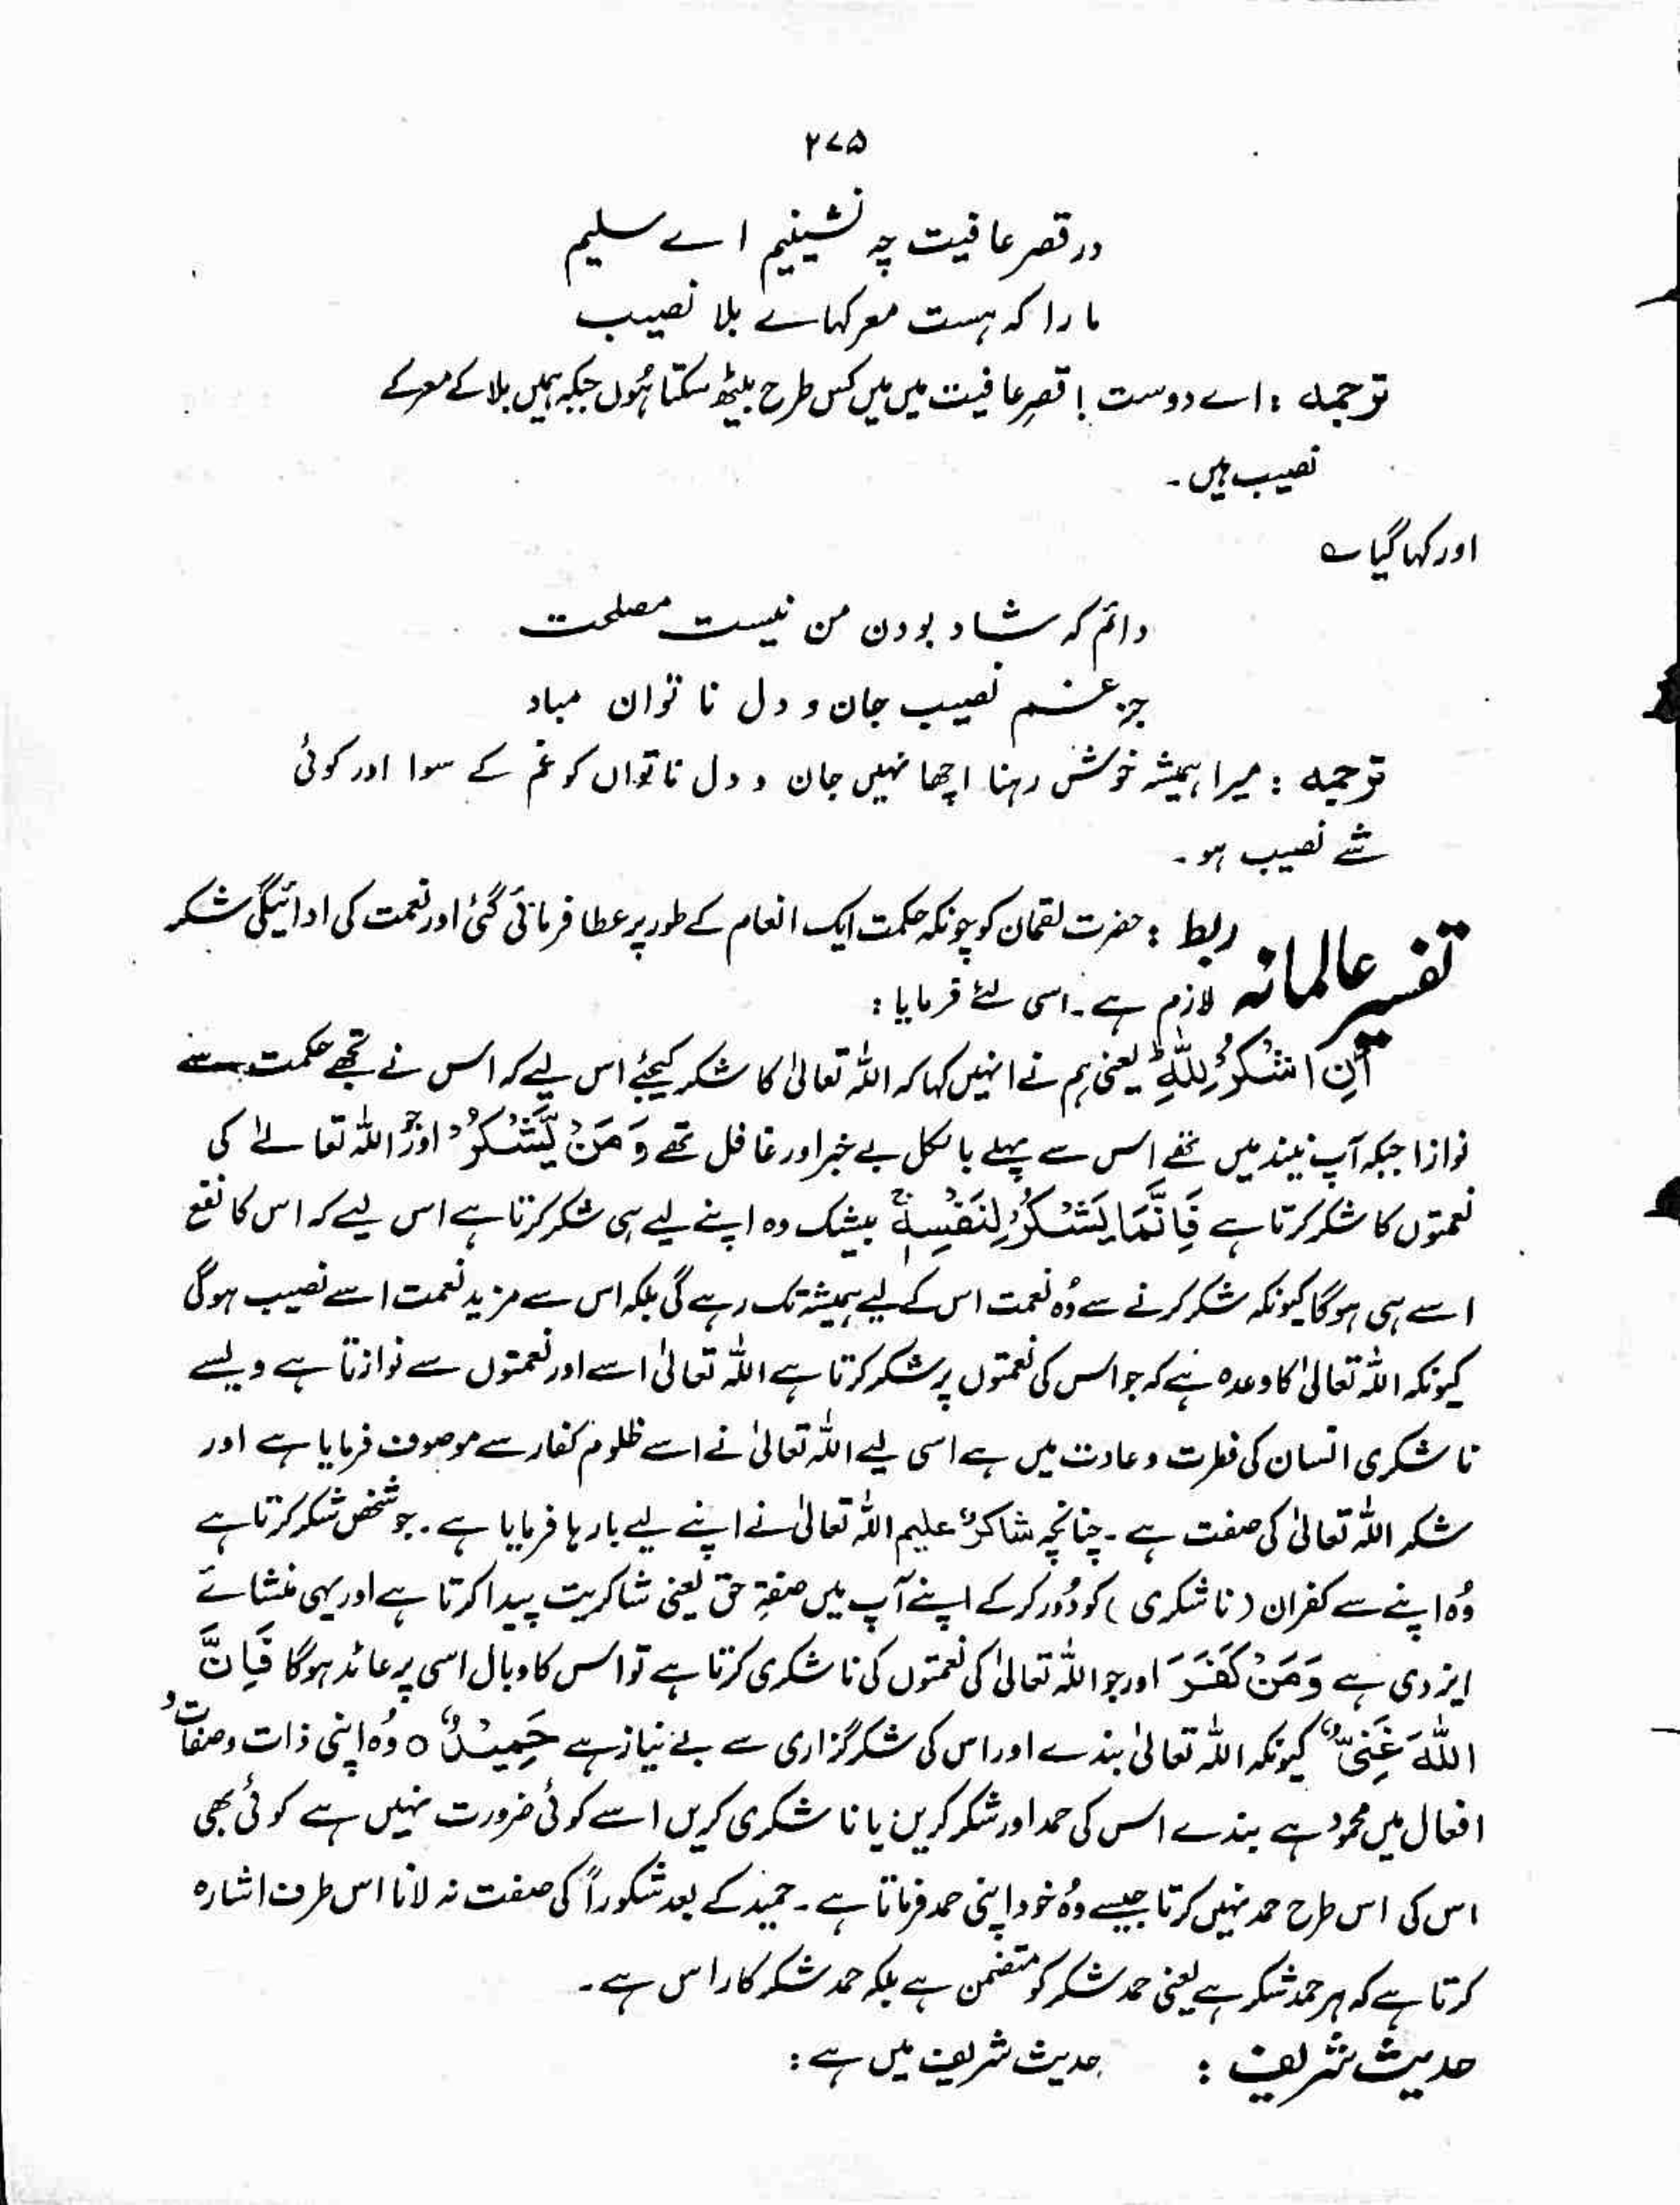 ۲۷۵
در قصر عافیت چہ نشینیم اے سلیم
ما را کہ ہست معرکہاے بلا نصیب
ترجمہ : اے دوست ! قصرِ عافیت میں میں کس طرح بیٹھ سکتا ہُوں جبکہ ہمیں بلا کے معرکے
نصیب ہیں ۔
اور کہا گیا ے
دائم کہ شاد بودن من نیست مصلحت
جز غم نصیب جان و دل نا توان مباد
ترجمہ : میرا ہمیشہ خوش رہنا اچھا نہیں جان و دل ناتواں کو غم کے سوا اور کوئی
شے نصیب ہو ۔
تفسیر عالمانہ ربط : حضرت لقمان کو چونکہ حکمت ایک انعام کے طور پر عطا فرمائی گئی اور نعمت کی ادائیگی شکر
لازم ہے ۔ اسی لئے فرمایا :
اَنِ اشْكُرْ لِلّٰهِ ؕ یعنی ہم نے انہیں کہا کہ اللہ تعالیٰ کا شکر کیجئے اس لیے کہ اس نے تجھے حکمت سے
نوازا جبکہ آپ نیند میں تھے اس سے پہلے بالکل بے خبر اور غافل تھے وَ مَنْ یَّشْكُرْ اور جو اللہ تعالےٰ کی
نعمتوں کا شکر کرتا ہے فَاِنَّمَا یَشْكُرُ لِنَفْسِهٖ ۚ بیشک وہ اپنے لیے ہی شکر کرتا ہے اس لیے کہ اس کا نفع
اسے ہی ہوگا کیونکہ شکر کرنے سے وُہ نعمت اس کے لیے ہمیشہ تک رہے گی بلکہ اس سے مزید نعمت اسے نصیب ہوگی
کیونکہ اللہ تعالیٰ کا وعدہ ہے کہ جو اس کی نعمتوں پر شکر کرتا ہے اللہ تعالیٰ اسے اور نعمتوں سے نوازتا ہے ویسے
ناشکری انسان کی فطرت و عادت میں ہے اسی لیے اللہ تعالیٰ نے اسے ظلوم کفار سے موصوف فرمایا ہے اور
شکر اللہ تعالیٰ کی صفت ہے ۔ چنانچہ شاکرٌ علیم اللہ تعالیٰ نے اپنے لیے بار ہا فرمایا ہے ۔ جو شخص شکر کرتا ہے
وُہ اپنے سے کفران (ناشکری) کو دُور کرکے اپنے آپ میں صفۃِ حق یعنی شاکریت پیدا کرتا ہے اور یہی منشائے
ایزدی ہے وَمَنْ كَفَرَ اور جو اللہ تعالیٰ کی نعمتوں کی ناشکری کرتا ہے تو اس کا وبال اسی پر عائد ہوگا فَاِنَّ
اللّٰهَ غَنِیٌّ کیونکہ اللہ تعالیٰ بندے اور اس کی شکر گزاری سے بے نیاز ہے حَمِیْدٌ ○ وُہ اپنی ذات و صفات و
افعال میں محمود ہے بندے اس کی حمد اور شکر کریں یا ناشکری کریں اسے کوئی ضرورت نہیں ہے کوئی بھی
اس کی اس طرح حمد نہیں کرتا جیسے وُہ خود اپنی حمد فرماتا ہے ۔ حمید کے بعد شکوراً کی صفت نہ لانا اس طرف اشارہ
کرتا ہے کہ ہر حمد شکر ہے یعنی حمد شکر کو متضمن ہے بلکہ حمد شکر کا راس ہے ۔
حدیث شریف : حدیث شریف میں ہے :